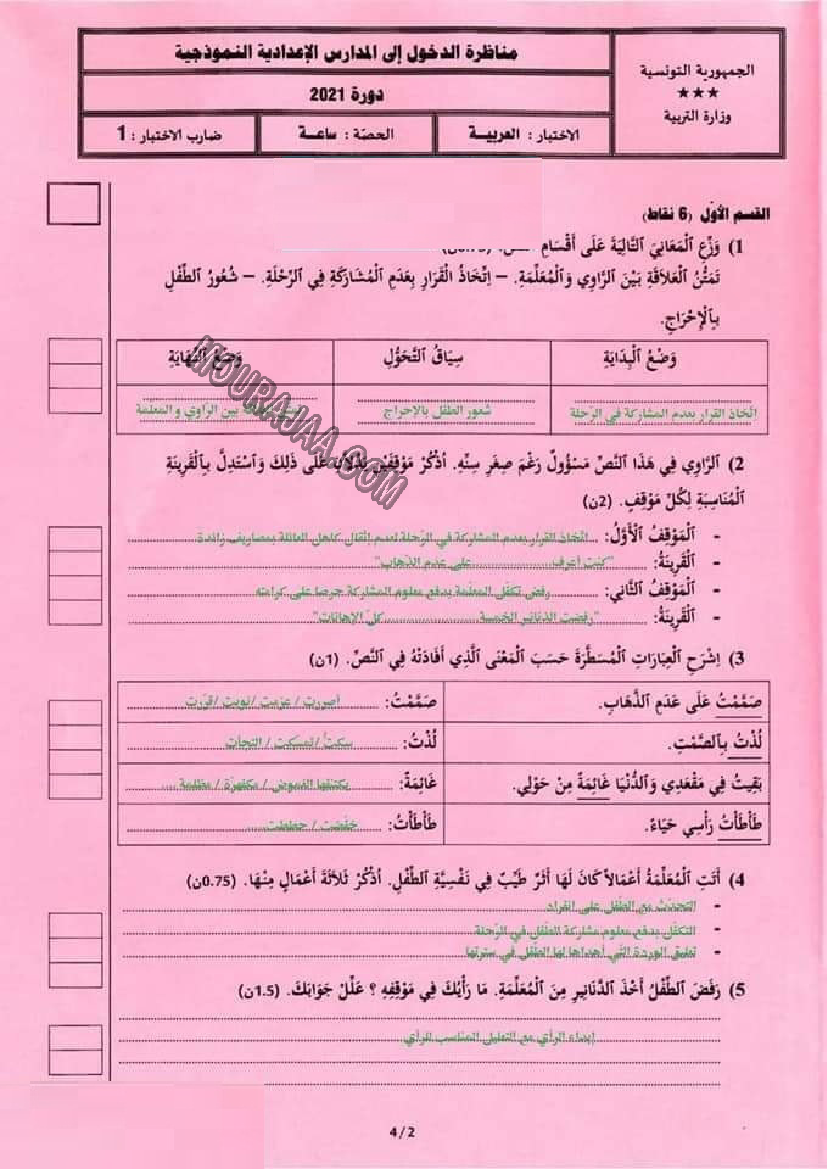 الجمهورية التونسية
★★★
وزارة التربية
مناظرة الدخول إلى المدارس الإعدادية النموذجية
دورة 2021
الاختبار : العربية
الحصّة : ساعـة
ضارب الاختبار : 1
القسم الأوّل (6 نقاط)
1) وَزِّعِ الْمَعَانِيَ التَّالِيَةَ عَلَى أَقْسَامِ
تَمَتُّنُ الْعَلَاقَةِ بَيْنَ الرَّاوِي وَالْمُعَلِّمَةِ. – اِتِّخَاذُ الْقَرَارِ بِعَدَمِ الْمُشَارَكَةِ فِي الرِّحْلَةِ. – شُعُورُ الطِّفْلِ
بِالْإِحْرَاجِ.
وَضْعُ الْبِدَايَةِ
سِيَاقُ التَّحَوُّلِ
وَضْعُ النِّهَايَةِ
اتّخاذ القرار بعدم المشاركة في الرّحلة
شعور الطّفل بالإحراج
بين الراوي والمعلمة
MOURAJAA.COM
2) اَلرَّاوِي فِي هَذَا النَّصِّ مَسْؤُولٌ رَغْمَ صِغَرِ سِنِّهِ. أُذْكُرْ مَوْقِفَيْنِ يَدُلَّانِ عَلَى ذَلِكَ وَاسْتَدِلَّ بِالْقَرِينَةِ
الْمُنَاسِبَةِ لِكُلِّ مَوْقِفٍ. (2ن)
- اَلْمَوْقِفُ الْأَوَّلُ: اتّخاذ القرار بعدم المشاركة في الرّحلة لعدم إثقال كاهل العائلة بمصاريف زائدة
- اَلْقَرِينَةُ: "كنت أعرف على عدم الذّهاب"
- اَلْمَوْقِفُ الثَّانِي: رفض تكفّل المعلّمة بدفع معلوم المشاركة حرصا على كرامته
- اَلْقَرِينَةُ: "رفضت الدّنانير الخمسة كلّ الإهانات"
3) اِشْرَحِ الْعِبَارَاتِ الْمُسَطَّرَةَ حَسَبَ الْمَعْنَى الَّذِي أَفَادَتْهُ فِي النَّصِّ. (1ن)
صَمَّمْتُ عَلَى عَدَمِ الذَّهَابِ.
صَمَّمْتُ: أصررت / عزمت / نويت / قرّرت
لُذْتُ بِالصَّمْتِ.
لُذْتُ: سكتّ / تمسّكت / التجأت
بَقِيتُ فِي مَقْعَدِي وَالدُّنْيَا غَائِمَةٌ مِنْ حَوْلِي.
غَائِمَةٌ: يكتنفها الغموض / مكفهرّة / مظلمة
طَأْطَأْتُ رَأْسِي حَيَاءً.
طَأْطَأْتُ: خفّضت / حططت
4) أَتَتِ الْمُعَلِّمَةُ أَعْمَالًا كَانَ لَهَا أَثَرٌ طَيِّبٌ فِي نَفْسِيَّةِ الطِّفْلِ. أُذْكُرْ ثَلَاثَةَ أَعْمَالٍ مِنْهَا. (0.75ن)
- التحدّث مع الطّفل على انفراد
- التكفّل بدفع معلوم مشاركة للطّفل في الرّحلة
- تعليق الوردة التي أهداها لها الطّفل في سترتها
5) رَفَضَ الطِّفْلُ أَخْذَ الدَّنَانِيرِ مِنَ الْمُعَلِّمَةِ. مَا رَأْيُكَ فِي مَوْقِفِهِ ؟ عَلِّلْ جَوَابَكَ. (1.5ن)
إبداء الرأي مع التعليل المناسب للرأي
4/2